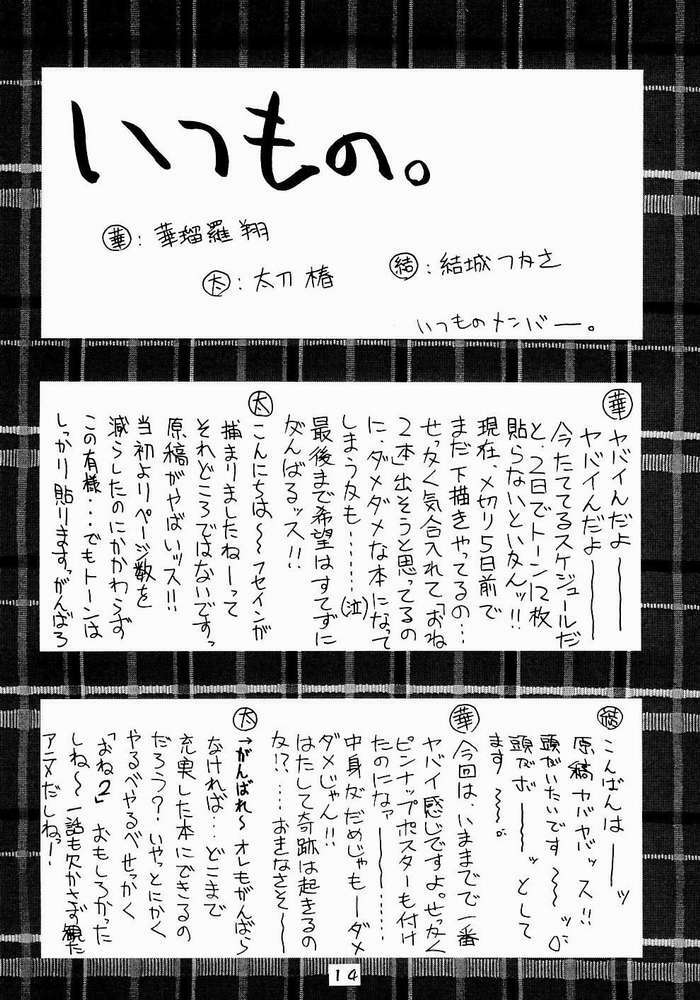 いつもの。
華：華瑠羅翔
太：太刀椿
結：結城つかさ
いつものメンバー。
華
ヤバイんだよ―――
ヤバイんだよ―――
今たててるスケジュールだ
と、2日でトーン12枚
貼らないといかんッ!!
現在、〆切り5日前で
まだ下描きやってるの…
せっかく気合入れて「おね
2本」出そうと思ってるの
に、ダメダメな本になって
しまうかも……(泣)
最後まで希望はすてずに
がんばるッス!!
太
こんにちは～～フセインが
捕まりましたねーって
それどころではないですっ
原稿がやばいッス!!
当初よりページ数を
減らしたのにかかわらず
この有様…でもトーンは
しっかり貼りますっがんばろ
結
こんばんは――ッ
原稿ヤバヤバッス!!
頭がいたいです～～ッ
頭がボ――ッとして
ます～～。
華
今回は、いままでで一番
ヤバイ感じですよ。せっかく
ピンナップポスターも付け
たのになァ――……
中身がだめじゃもーダメ
ダメじゃん!!
はたして奇跡は起きるの
か!?…おきなさそ～―
太
→がんばれ～オレもがんばら
なければ…どこまで
充実した本にできるの
だろう?いやっとにかく
やるべやるべせっかく
「おね2」おもしろかった
しね～一話も欠かさず観た
アニメだしねっー!
14